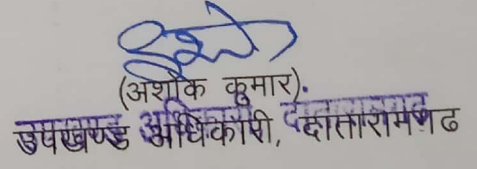 (अशोक कुमार).
उपखण्ड अधिकारी, दातारामगढ